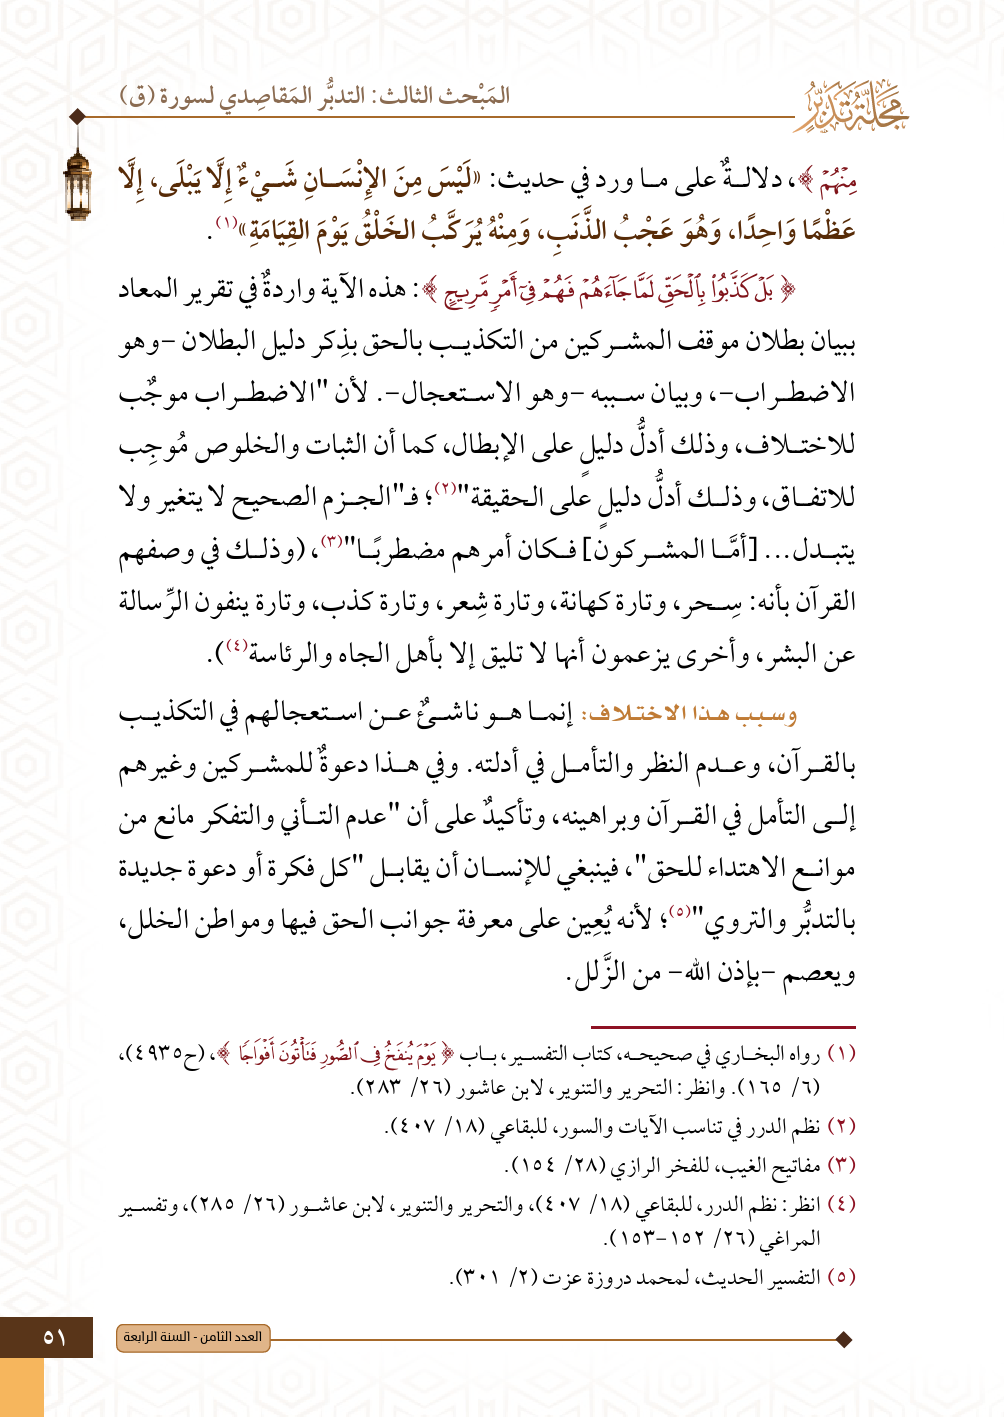 مجلة تدبر
المَبْحث الثالث: التدبُّر المَقاصِدي لسورة (ق)
مِنْهُمْ ﴾، دلالةٌ على ما ورد في حديث: «لَيْسَ مِنَ الإِنْسَانِ شَيْءٌ إِلَّا يَبْلَى، إِلَّا
عَظْمًا وَاحِدًا، وَهُوَ عَجْبُ الذَّنَبِ، وَمِنْهُ يُرَكَّبُ الخَلْقُ يَوْمَ القِيَامَةِ»(١).
﴿ بَلْ كَذَّبُوا۟ بِٱلْحَقِّ لَمَّا جَآءَهُمْ فَهُمْ فِىٓ أَمْرٍ مَّرِيجٍ ﴾: هذه الآية واردةٌ في تقرير المعاد
ببيان بطلان موقف المشركين من التكذيب بالحق بذِكر دليل البطلان -وهو
الاضطراب-، وبيان سببه -وهو الاستعجال-. لأن "الاضطراب موجٌب
للاختلاف، وذلك أدلُّ دليلٍ على الإبطال، كما أن الثبات والخلوص مُوجِب
للاتفاق، وذلك أدلُّ دليلٍ على الحقيقة"(٢)؛ فـ"الجزم الصحيح لا يتغير ولا
يتبدل... [أمَّا المشركون] فكان أمرهم مضطربًا"(٣)، (وذلك في وصفهم
القرآن بأنه: سِحر، وتارة كهانة، وتارة شِعر، وتارة كذب، وتارة ينفون الرِّسالة
عن البشر، وأخرى يزعمون أنها لا تليق إلا بأهل الجاه والرئاسة(٤)).
وسبب هذا الاختلاف: إنما هو ناشئٌ عن استعجالهم في التكذيب
بالقرآن، وعدم النظر والتأمل في أدلته. وفي هذا دعوةٌ للمشركين وغيرهم
إلى التأمل في القرآن وبراهينه، وتأكيدٌ على أن "عدم التأني والتفكر مانع من
موانع الاهتداء للحق"، فينبغي للإنسان أن يقابل "كل فكرة أو دعوة جديدة
بالتدبُّر والتروي"(٥)؛ لأنه يُعِين على معرفة جوانب الحق فيها ومواطن الخلل،
ويعصم -بإذن الله- من الزَّلل.
(١) رواه البخاري في صحيحه، كتاب التفسير، باب ﴿ يَوْمَ يُنفَخُ فِى ٱلصُّورِ فَتَأْتُونَ أَفْوَاجًا ﴾، (ح٤٩٣٥)،
(٦/ ١٦٥). وانظر: التحرير والتنوير، لابن عاشور (٢٦/ ٢٨٣).
(٢) نظم الدرر في تناسب الآيات والسور، للبقاعي (١٨/ ٤٠٧).
(٣) مفاتيح الغيب، للفخر الرازي (٢٨/ ١٥٤).
(٤) انظر: نظم الدرر، للبقاعي (١٨/ ٤٠٧)، والتحرير والتنوير، لابن عاشور (٢٦/ ٢٨٥)، وتفسير
المراغي (٢٦/ ١٥٢-١٥٣).
(٥) التفسير الحديث، لمحمد دروزة عزت (٢/ ٣٠١).
العدد الثامن - السنة الرابعة
٥١